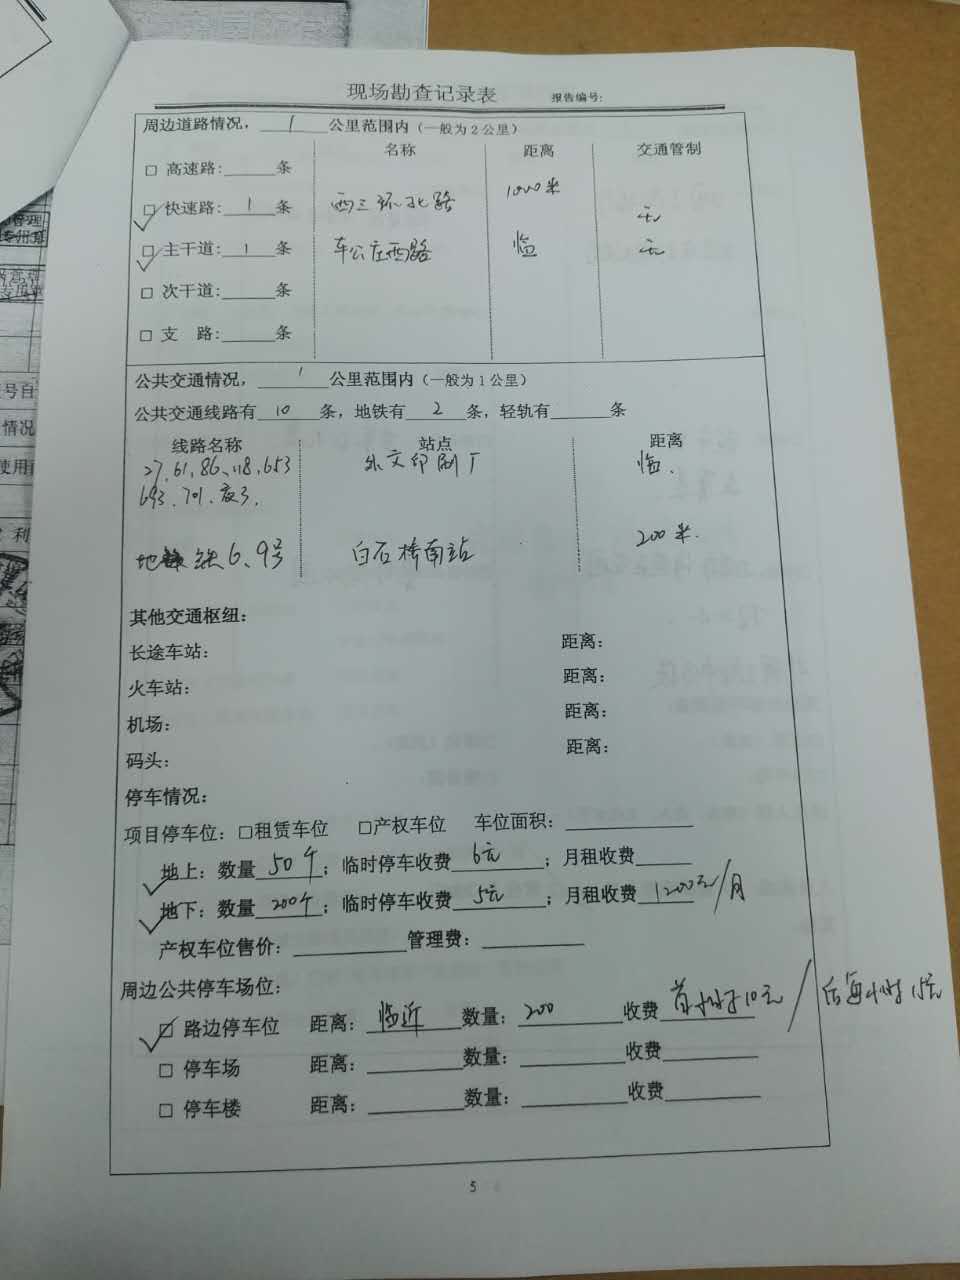 现场勘查记录表 报告编号:
周边道路情况, 1 公里范围内(一般为2公里)
名称 距离 交通管制
□ 高速路: 条
☑ 快速路: 1 条 西三环北路 1000米 无
☑ 主干道: 1 条 车公庄西路 临 无
□ 次干道: 条
□ 支 路: 条
公共交通情况, 1 公里范围内(一般为1公里)
公共交通线路有 10 条, 地铁有 2 条, 轻轨有 条
线路名称 站点 距离
27.61.86.118.653 外文印刷厂 临.
693.701.夜3.
地铁6、9号 白石桥南站 200米.
其他交通枢纽:
长途车站: 距离:
火车站: 距离:
机场: 距离:
码头: 距离:
停车情况:
项目停车位: □租赁车位 □产权车位 车位面积:
✓地上: 数量 50个; 临时停车收费 6元; 月租收费
✓地下: 数量 200个; 临时停车收费 5元; 月租收费 1200元/月
产权车位售价: 管理费:
周边公共停车场位:
☑ 路边停车位 距离: 临近 数量: 200 收费 首小时10元/后每小时15元
□ 停车场 距离: 数量: 收费
□ 停车楼 距离: 数量: 收费
5